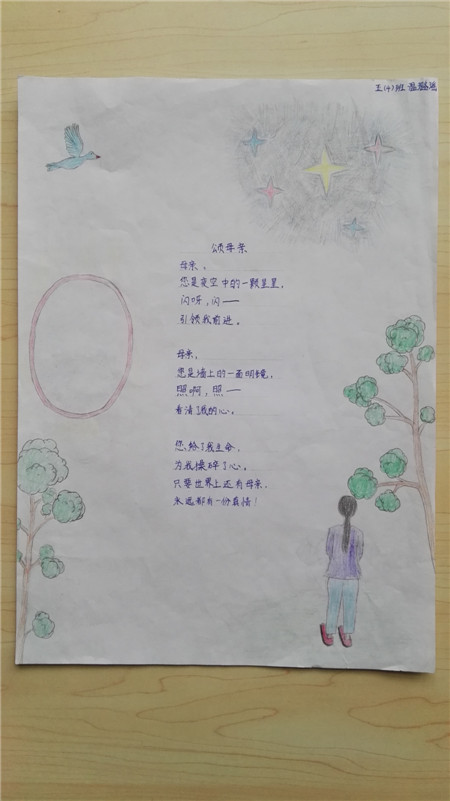 五(4)班
颂母亲
母亲、
您是夜空中的一颗星星,
闪呀,闪——
引领我前进。
母亲,
您是墙上的一面明镜,
照啊,照——
看清了我的心。
您给了我生命,
为我操碎了心。
只要世界上还有母亲,
永远都有一份真情!